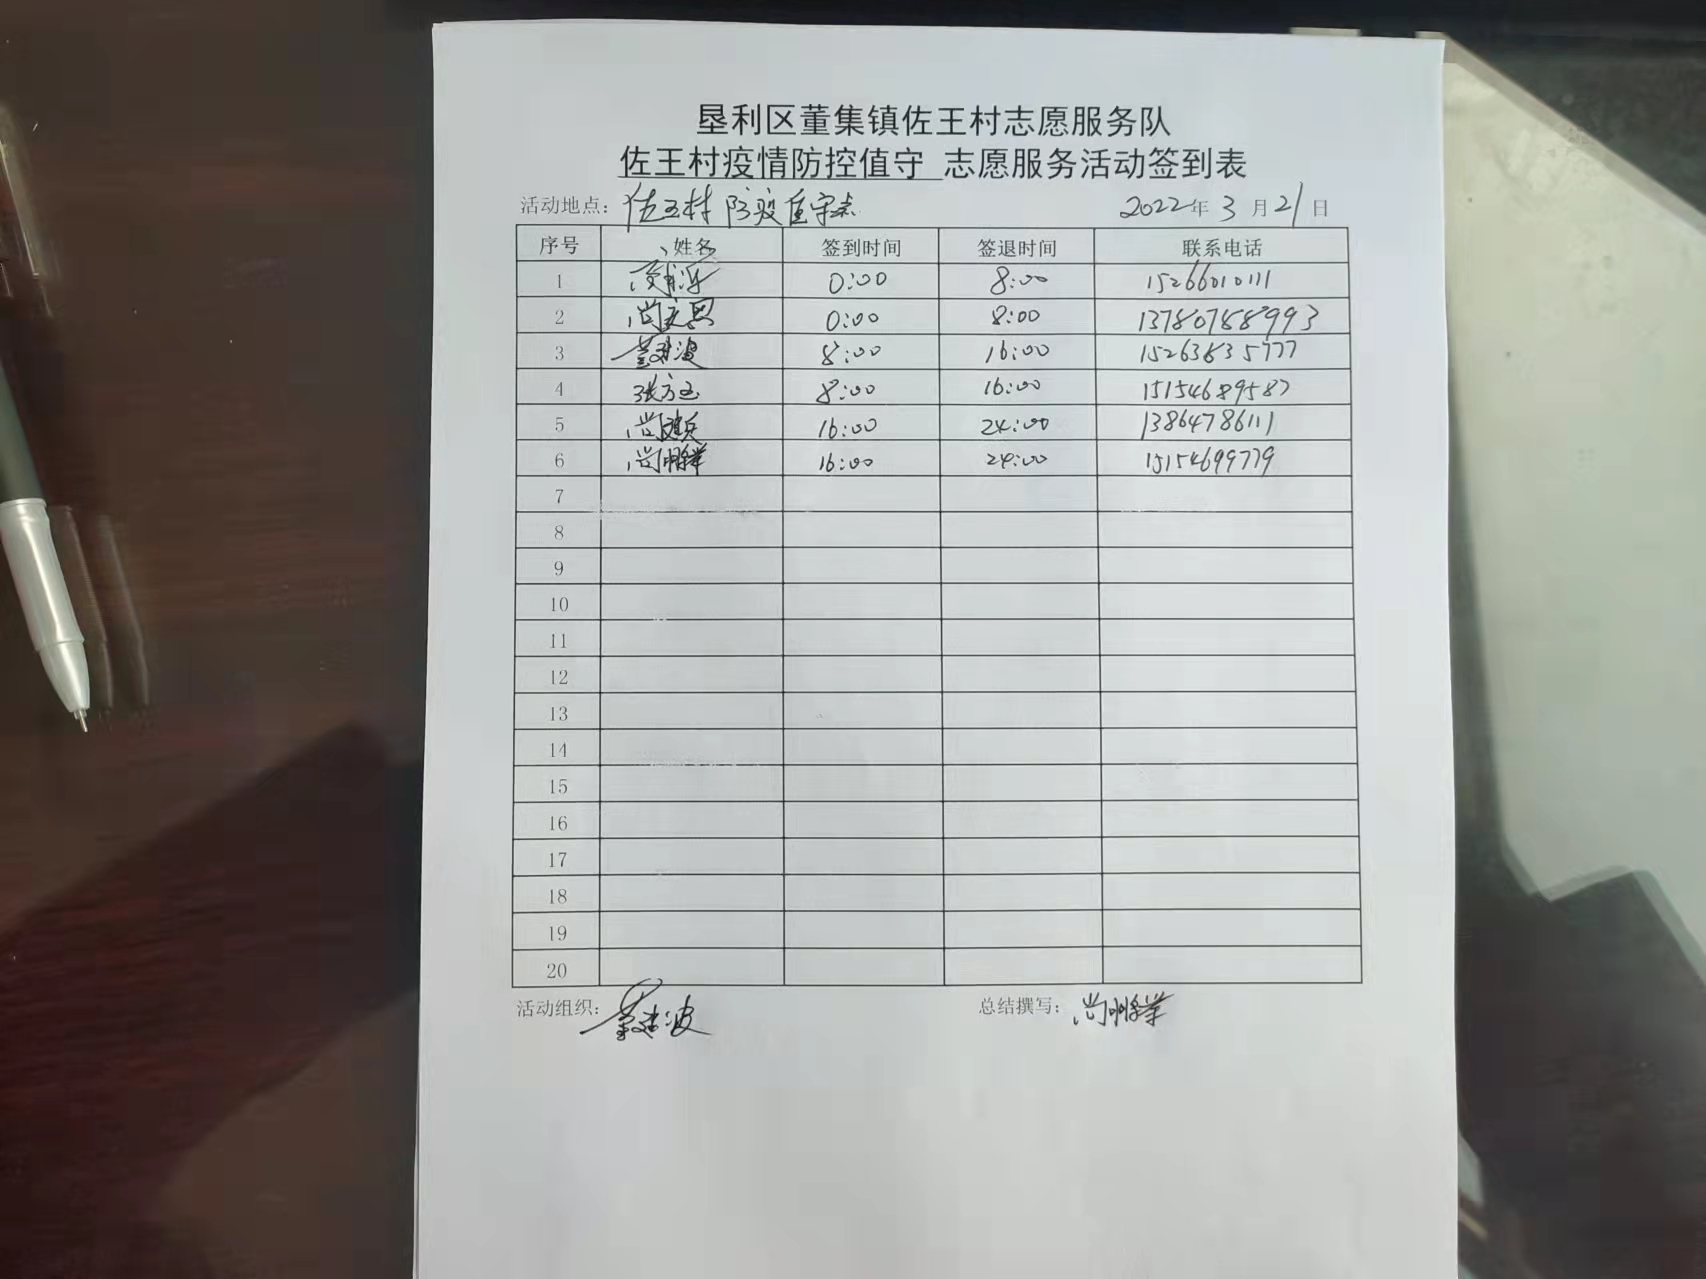 垦利区董集镇佐王村志愿服务队
佐王村疫情防控值守 志愿服务活动签到表
活动地点：佐王村防疫值守点 2022年3月21日
序号 姓名 签到时间 签退时间 联系电话
1 0:00 8:00 15266010111
2 尚 0:00 8:00
3 波 8:00 16:00 15263835777
4 张方玉 8:00 16:00 15154689587
5 尚建兵 16:00 24:00 13864786111
6 尚 16:00 24:00 15154699779
7
8
9
10
11
12
13
14
15
16
17
18
19
20
活动组织： 波 总结撰写：尚